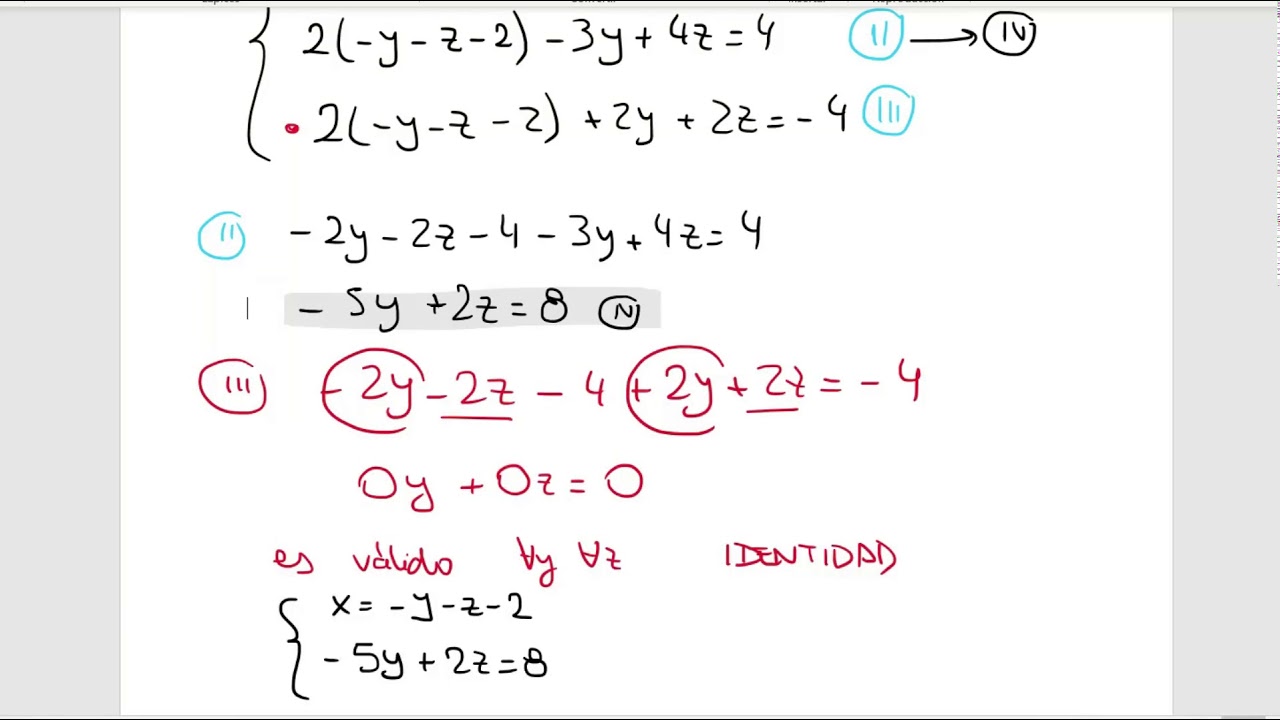 2(-y-z-2)-3y+4z=4 II → IV
2(-y-z-2)+2y+2z=-4 III
II -2y-2z-4-3y+4z=4
-5y+2z=8 IV
III -2y-2z-4+2y+2z=-4
0y+0z=0
es válido ∀y ∀z IDENTIDAD
x=-y-z-2
-5y+2z=8